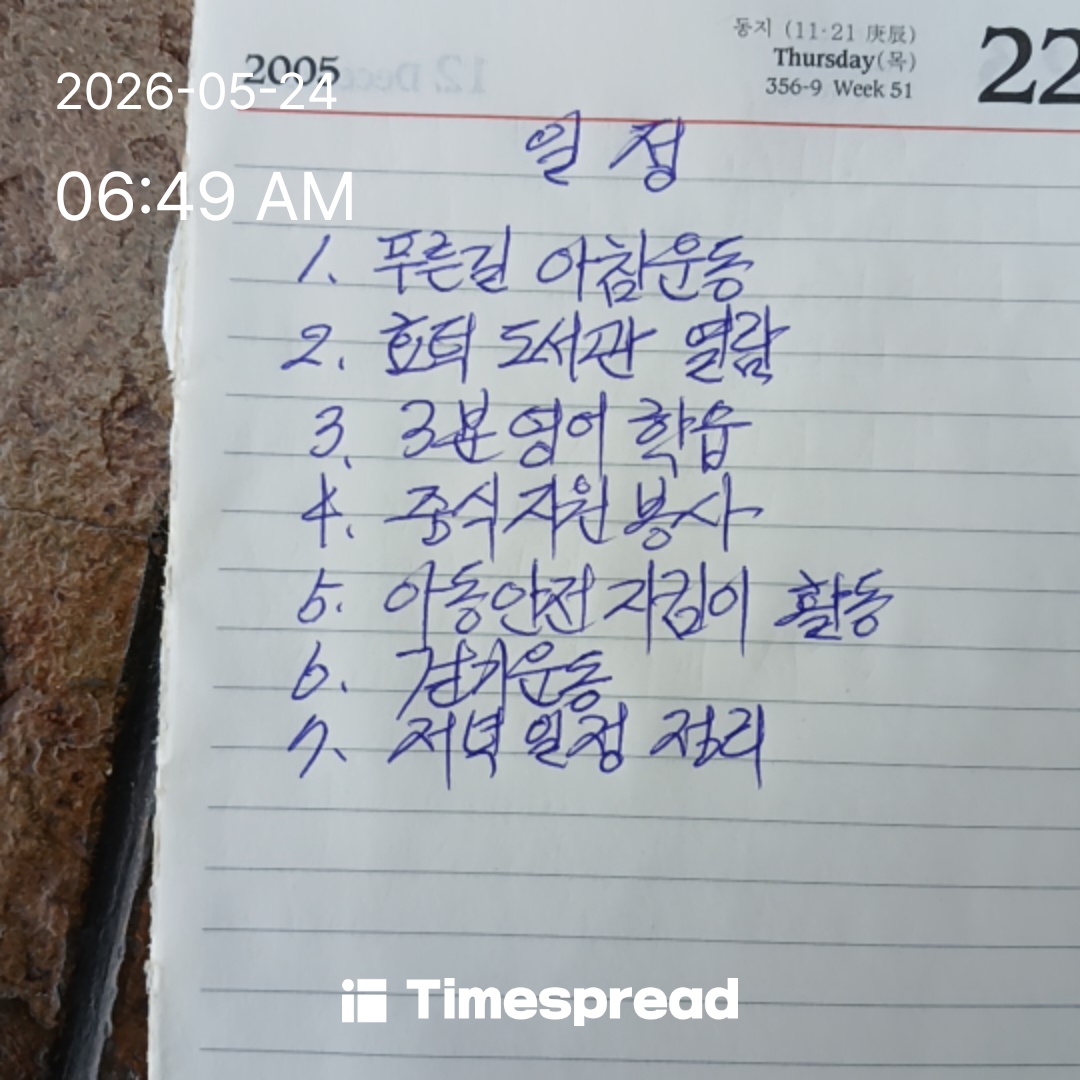 동지 (11·21 庚辰)
2005
Thursday(목)
22
356-9 Week 51
2026-05-24
06:49 AM
일 정
1. 푸른길 아침운동
2. 효덕 도서관 열람
3. 3분 영어 학습
4. 중식 자원 봉사
5. 아동안전 지킴이 활동
6. 걷기운동
7. 저녁 일정 정리
Timespread